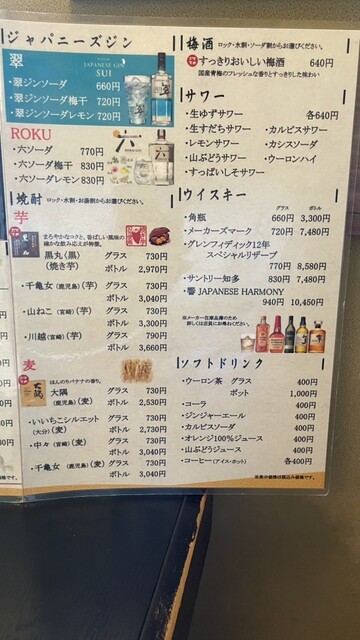 ジャパニーズジン
翠
JAPANESE GIN
SUI
・翠ジンソーダ 660円
・翠ジンソーダ梅干 720円
・翠ジンソーダレモン 720円
ROKU
・六ソーダ 770円
・六ソーダ梅干 830円
・六ソーダレモン 830円
焼酎 ロック・水割・お湯割からお選びください。
芋
まろやかなコクと、香ばしい風味の
確かな飲み応えが特徴。
黒丸〈黒〉 グラス 730円
(焼き芋) ボトル 2,970円
・千亀女(鹿児島)(芋) グラス 730円
ボトル 3,040円
・山ねこ(宮崎)(芋) グラス 730円
ボトル 3,300円
・川越(宮崎)(芋) グラス 790円
ボトル 3,660円
麦
ほんのりバナナの香り。
大隅 グラス 730円
(鹿児島)(麦) ボトル 2,530円
・いいちこシルエット グラス 730円
(大分)(麦) ボトル 2,730円
・中々(宮崎)(麦) グラス 730円
ボトル 3,040円
・千亀女(鹿児島)(麦) グラス 730円
ボトル 3,040円
梅酒 ロック・水割・ソーダ割からお選びください。
すっきりおいしい梅酒 640円
国産青梅のフレッシュな香りとすっきりした味わい
サワー
・生ゆずサワー 各640円
・生すだちサワー ・カルピスサワー
・レモンサワー ・カシスソーダ
・山ぶどうサワー ・ウーロンハイ
・すっぱいしそサワー
ウイスキー
グラス ボトル
・角瓶 660円 3,300円
・メーカーズマーク 720円 7,480円
・グレンフィディック12年
スペシャルリザーブ
770円 8,580円
・サントリー知多 830円 7,480円
・響 JAPANESE HARMONY
940円 10,450円
※メーカー在庫品薄のため
詳しくは店員にお尋ねください。
ソフトドリンク
・ウーロン茶 グラス 400円
ポット 1,000円
・コーラ 400円
・ジンジャーエール 400円
・カルピスソーダ 400円
・オレンジ100%ジュース 400円
・山ぶどうジュース 400円
・コーヒー(アイス・ホット) 各400円
※表示価格は税込み価格です。